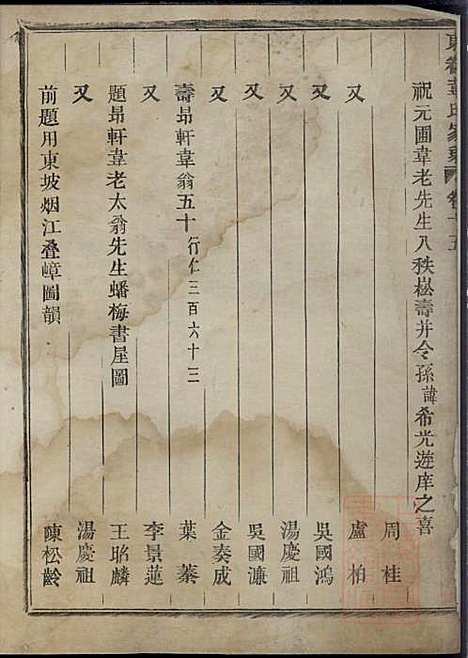 東眷韋氏家乘 卷十五
祝元圃韋老先生八秩崧壽并令孫諱希光遊庠之喜 周桂
又 盧柏
又 吳國鴻
又 湯慶祖
又 吳國濂
又 金奏成
壽昻軒韋翁五十行仁三百六十三 葉蓁
又 李景蓮
題昻軒韋老太翁先生蟠梅書屋圖 王昭麟
又 湯慶祖
前題用東坡烟江叠嶂圖韻 陳松齡